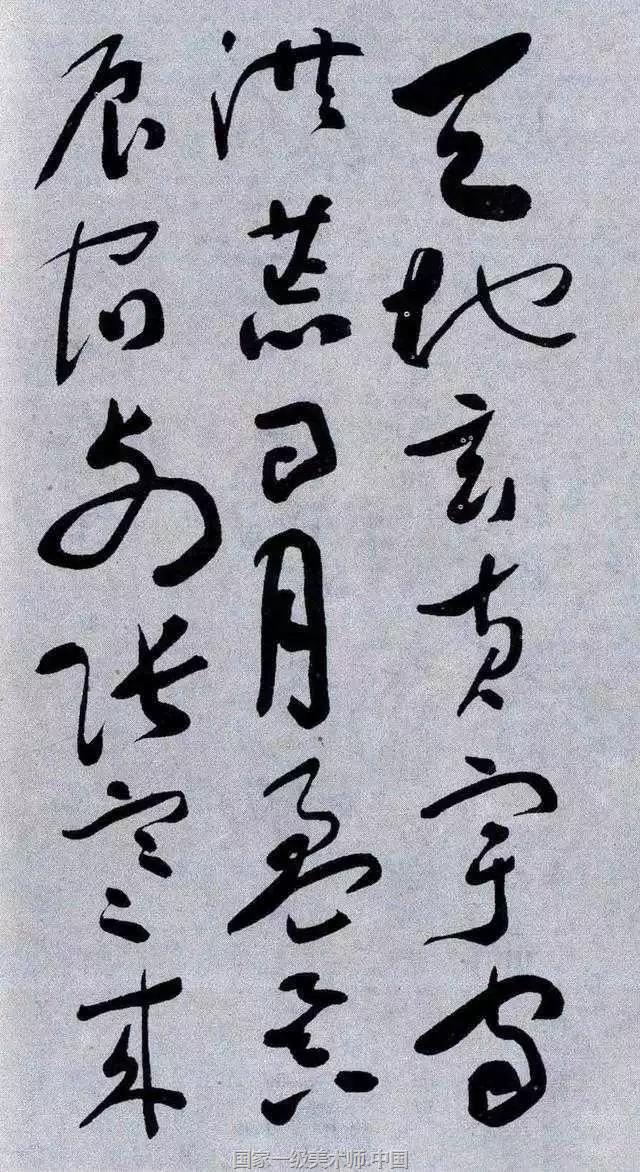 天地玄黄宇宙
洪荒日月盈昃
辰宿列张寒来
国家一级美术师.中国